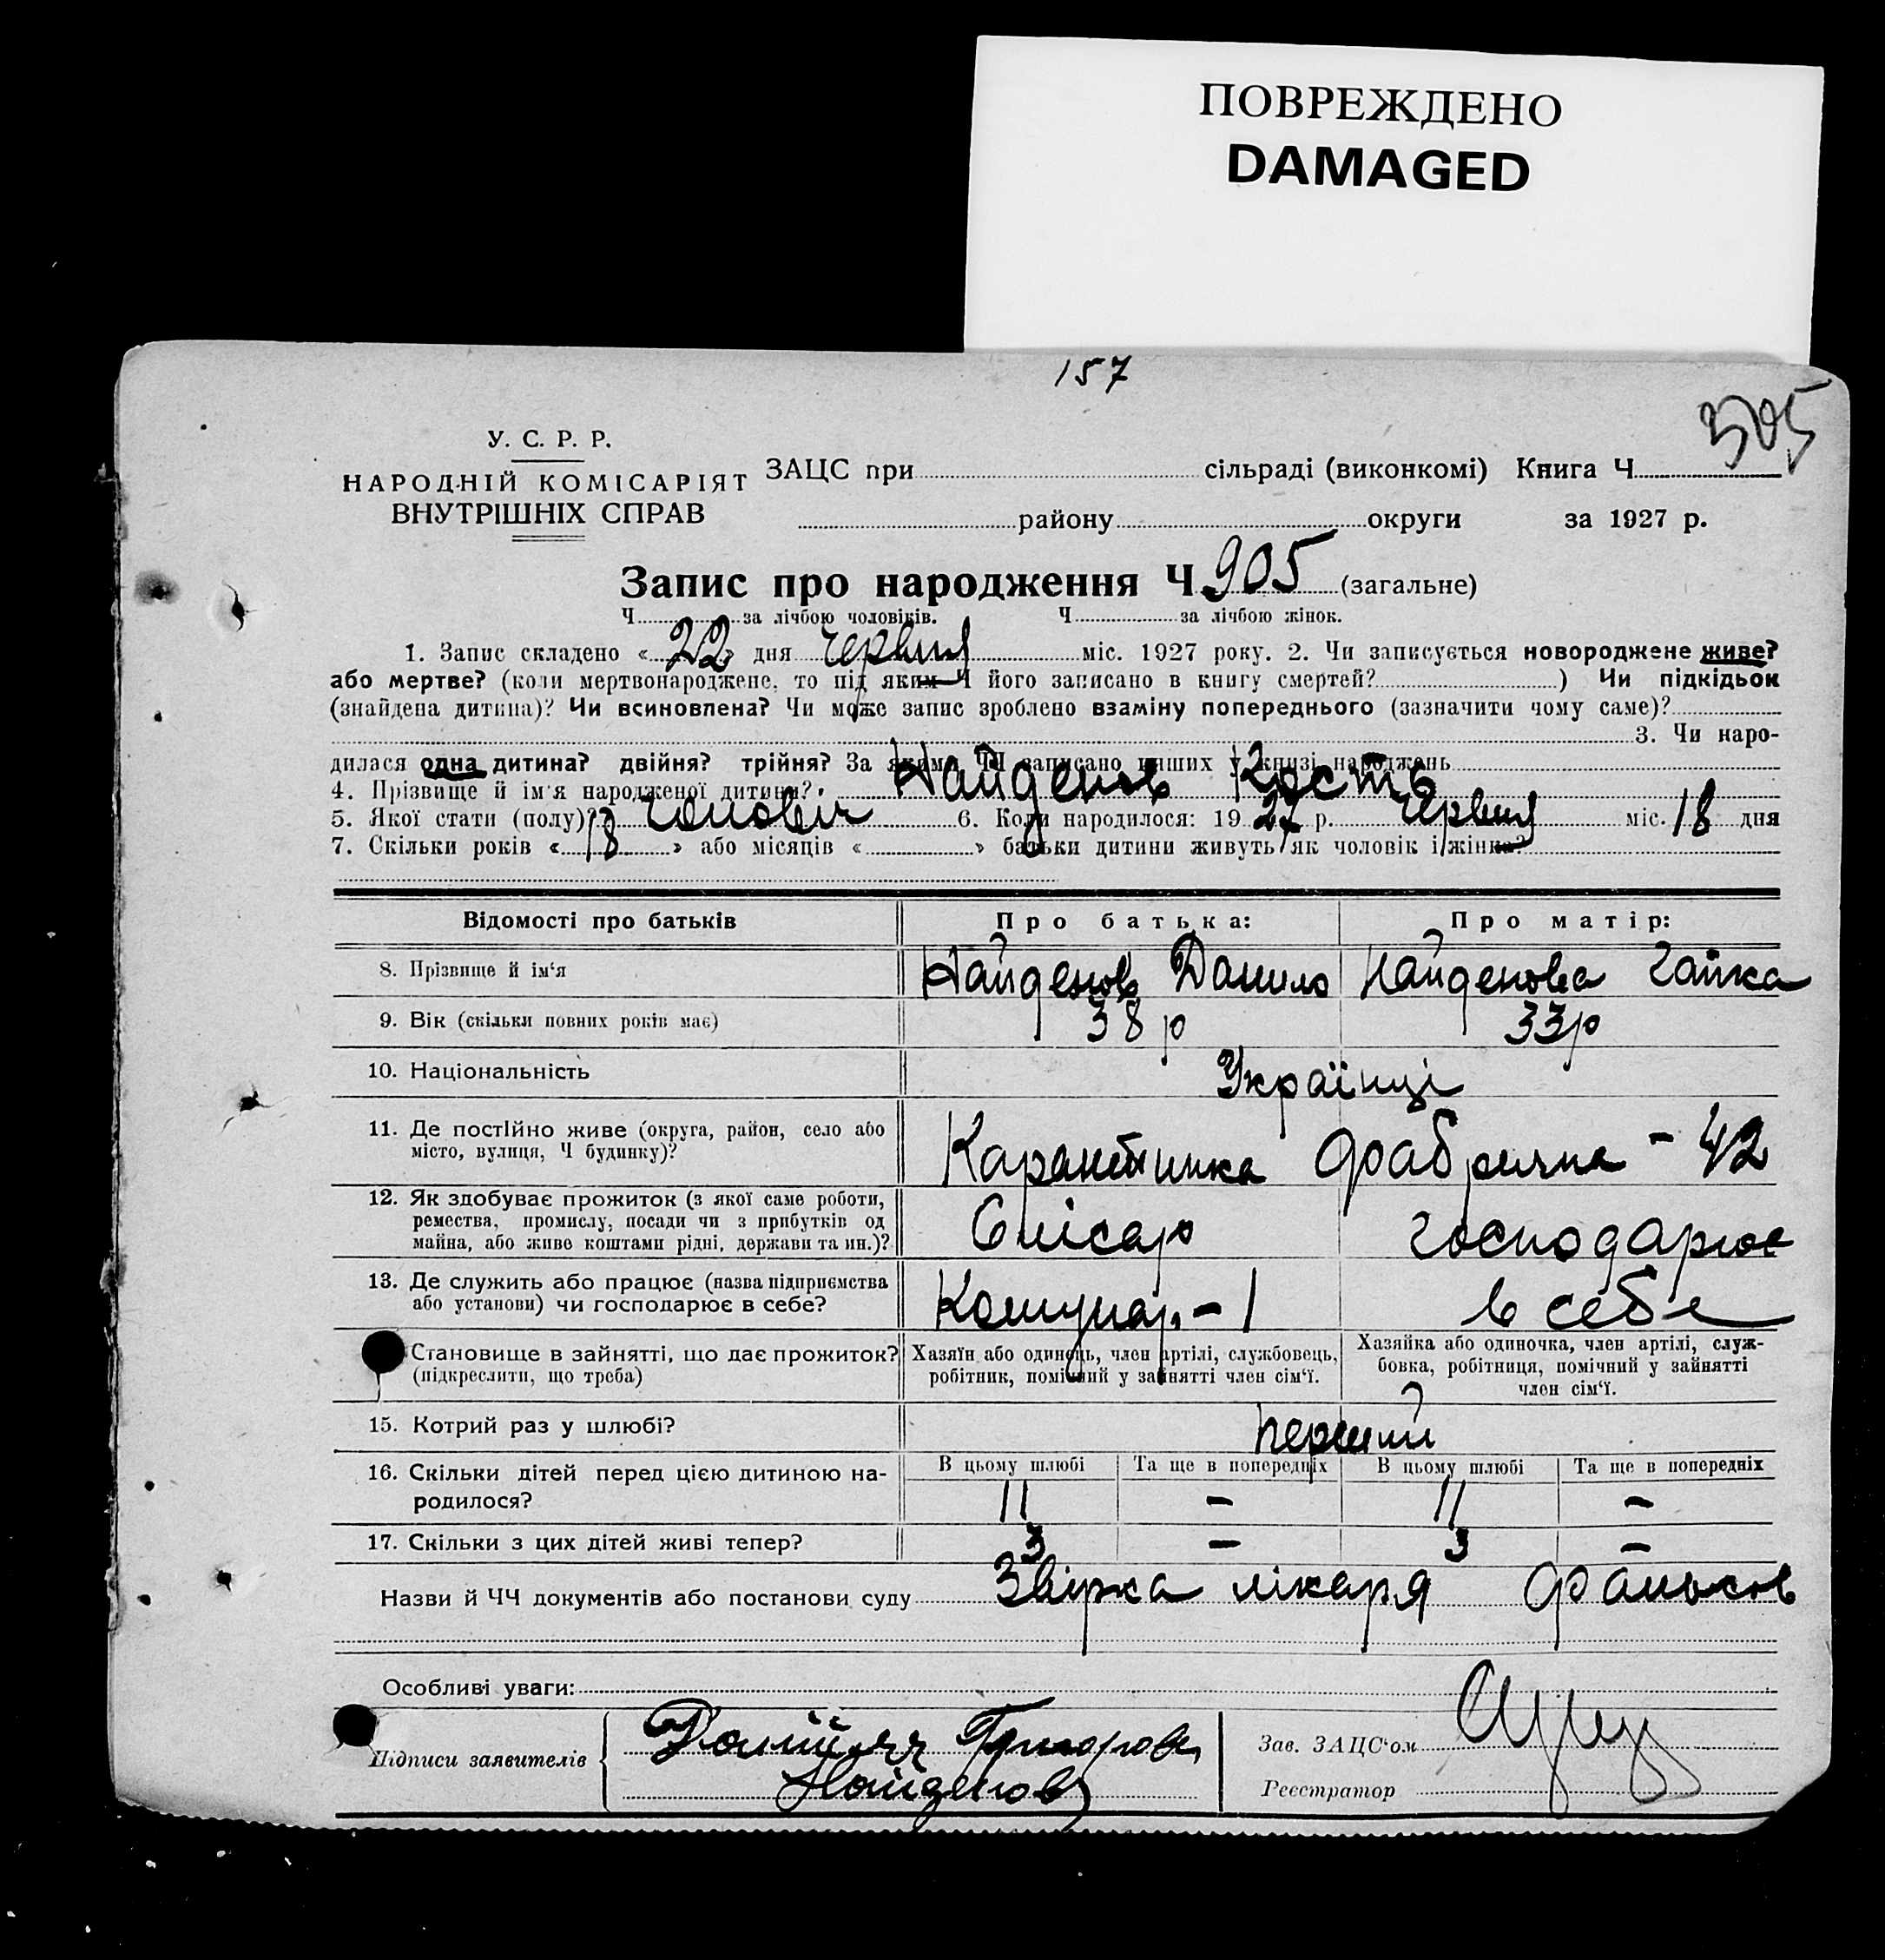 ПОВРЕЖДЕНО
DAMAGED
157
305
У. С. Р. Р.
НАРОДНІЙ КОМІСАРІЯТ
ВНУТРІШНІХ СПРАВ
ЗАЦС при сільраді (виконкомі) Книга Ч
району округи за 1927 р.
Запис про народження Ч 905 (загальне)
Ч за лічбою чоловіків. Ч за лічбою жінок.
1. Запис складено « 22 » дня червня міс. 1927 року. 2. Чи записується новороджене живе?
або мертве? (коли мертвонароджене, то під яким Ч його записано в книгу смертей? ) Чи підкідьок
(знайдена дитина)? Чи всиновлена? Чи може запис зроблено взаміну попереднього (зазначити чому саме)?
3. Чи наро-
дилася одна дитина? двійня? трійня? За якими ЧЧ записано инших у книзі народжень
4. Прізвище й ім'я народженої дитини? Найденов Кость
5. Якої стати (полу)? чоловіч 6. Коли народилося: 19 27 р. червня міс. 18 дня
7. Скільки років « 18 » або місяців « » батьки дитини живуть як чоловік і жінка?
Відомості про батьків Про батька: Про матір:
8. Прізвище й ім'я Найденов Данило Найденова
9. Вік (скільки повних років має) 38 р 33 р
10. Національність Українці
11. Де постійно живе (округа, район, село або
місто, вулиця, Ч будинку)? Карантинка Фабрична - 42
12. Як здобуває прожиток (з якої саме роботи,
ремества, промислу, посади чи з прибутків од
майна, або живе коштами рідні, держави та ин.)? Слісар господарює
13. Де служить або працює (назва підприємства
або установи) чи господарює в себе? Комунар - 1 в себе
Становище в зайнятті, що дає прожиток?
(підкреслити, що треба)
Хазяїн або одинець, член артілі, службовець,
робітник, помічний у зайнятті член сім'ї.
Хазяйка або одиночка, член артілі, служ-
бовка, робітниця, помічний у зайнятті
член сім'ї.
15. Котрий раз у шлюбі? перший
16. Скільки дітей перед цією дитиною на-
родилося?
В цьому шлюбі Та ще в попередніх В цьому шлюбі Та ще в попередніх
11 - 11 -
17. Скільки з цих дітей живі тепер? 3 - 3 -
Назви й ЧЧ документів або постанови суду Звірка лікаря
Особливі уваги:
Підписи заявителів
Найденов
Зав. ЗАЦС'ом
Реєстратор